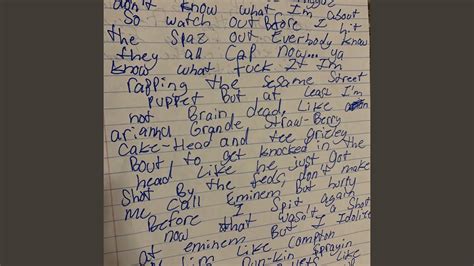 don't know what I'm about
So watch out Before I hit
the Spaz out Everbody know
they all Cap now... ya
know what fuck It I'm
rapping the sesame Street
puppet But at Least I'm
not Brain dead, Like
ariana Grande Straw-Berry
Cake-Head and tee grizley
Bout to get knocked in the
head Like he just got
Shot By the feds, don't make
me Call Eminem, but hurry
Before I Spit again
now that wasn't a Shot
at eminem But I Idolize
him Like Compton
Sprayin